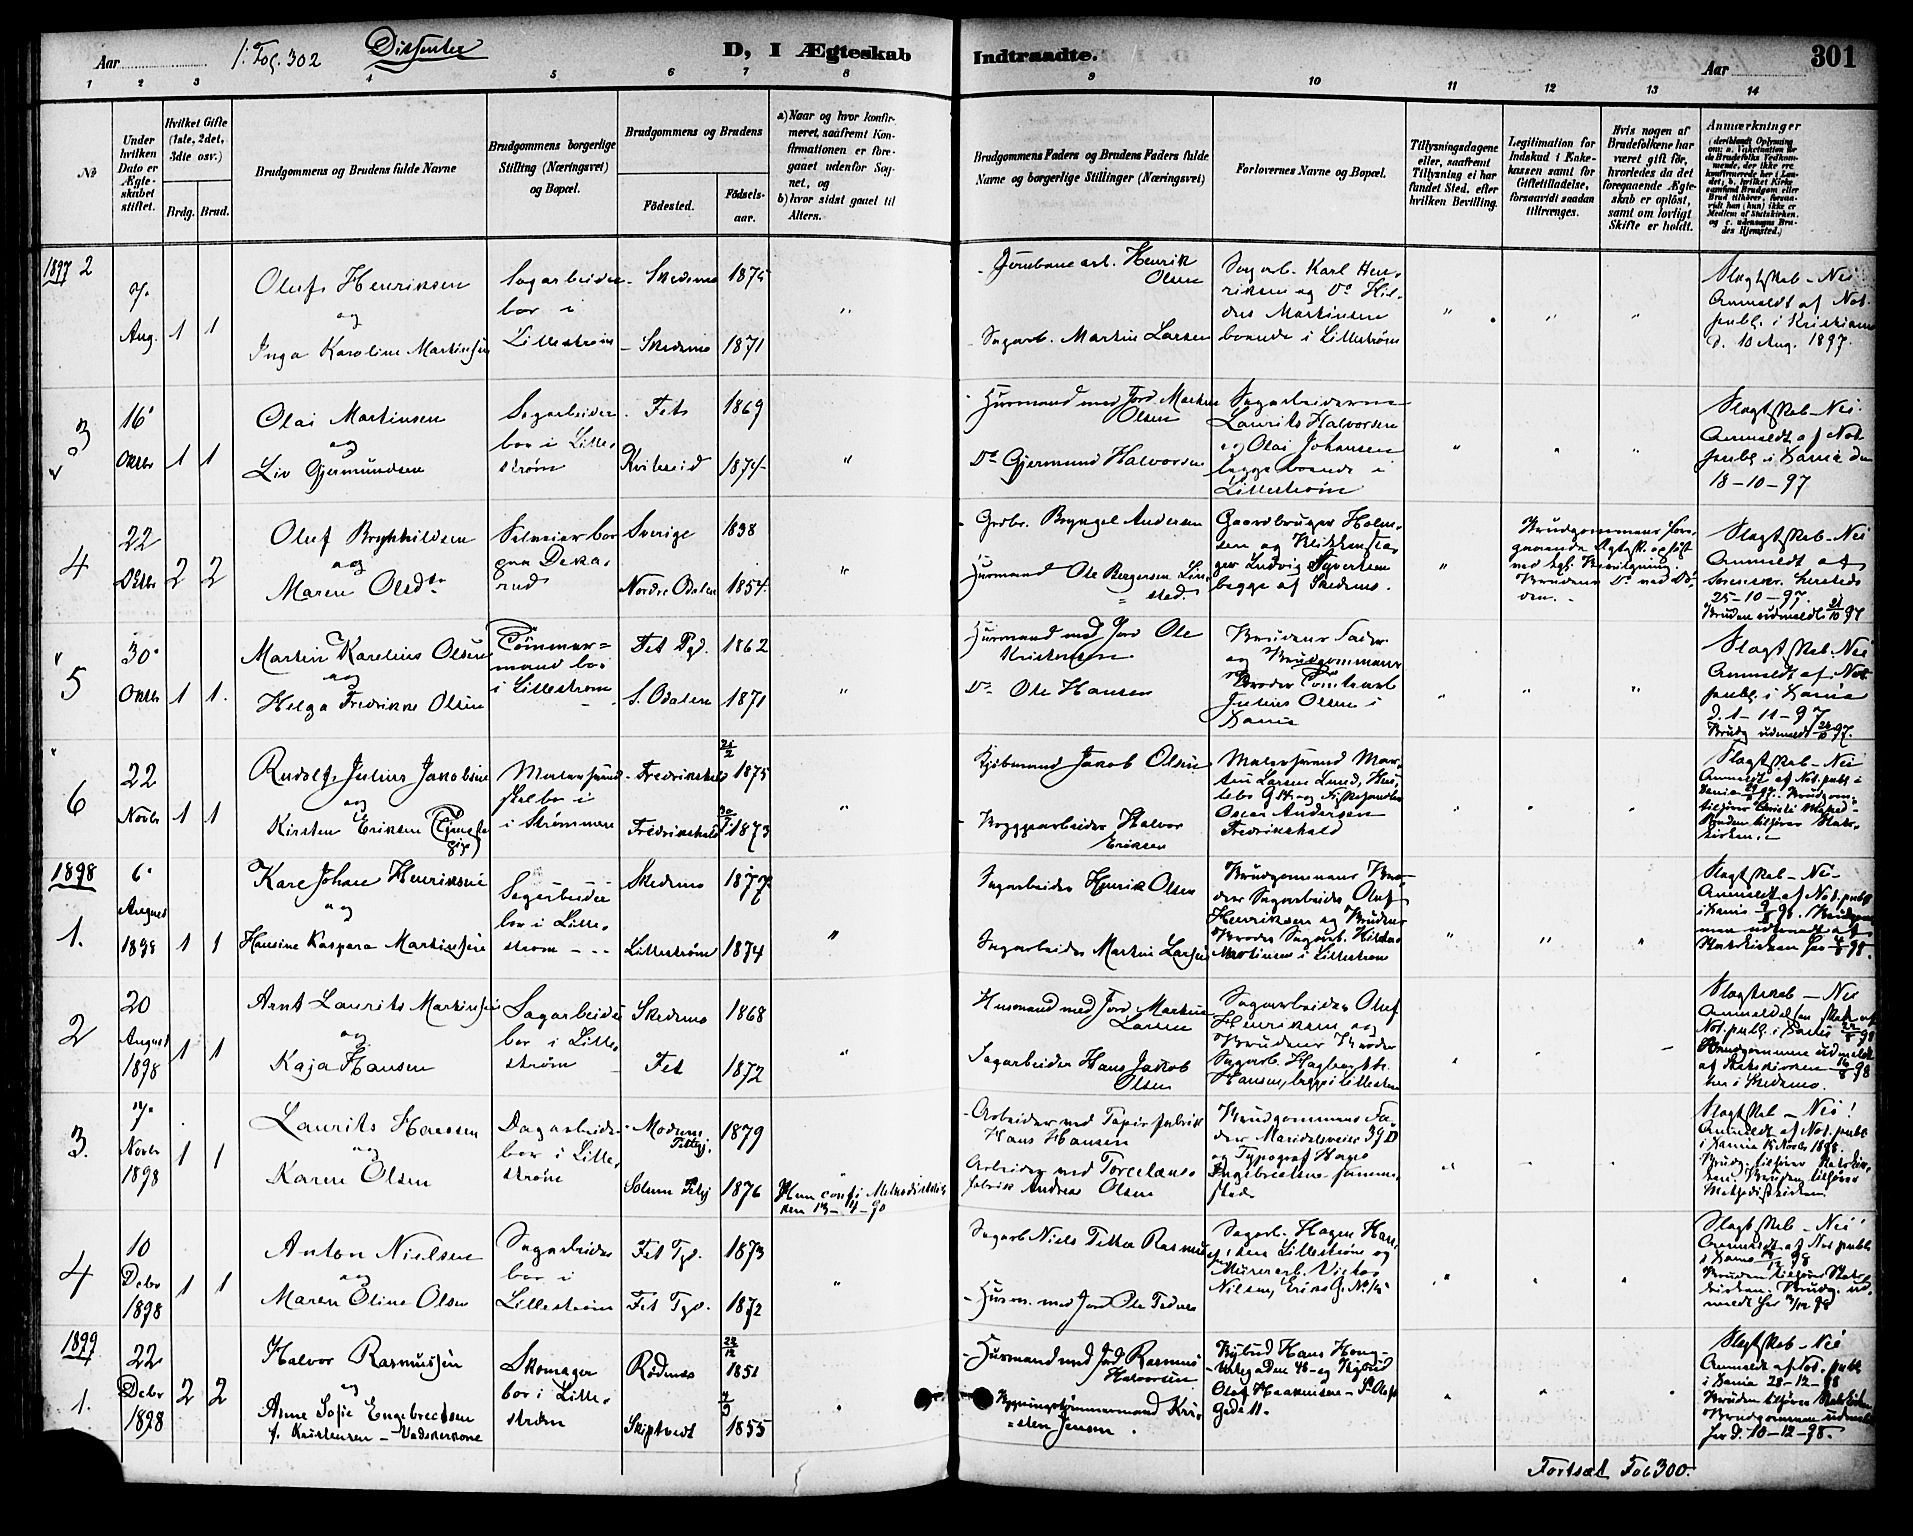 Aar
1. Fol. 302
Dissenter
D, I Ægteskab
Indtraadte.
Aar
301
1 2 3 4 5 6 7 8 9 10 11 12 13 14
No
Under hvilken Dato er Ægteskabet stiftet.
Hvilket Gifte (1ste, 2det, 3die osv.)
Brdg. Brud.
Brudgommens og Brudens fulde Navne
Brudgommens borgerlige Stilling (Næringsvei) og Bopæl.
Brudgommens og Brudens
Fødested.
Fødselsaar.
a) Naar og hvor konfirmeret, saafremt Konfirmationen er foregaaet udenfor Sognet, og
b) hvor sidst gaaet til Alters.
Brudgommens Faders og Brudens Faders fulde Navne og borgerlige Stillinger (Næringsvei)
Forlovernes Navne og Bopæl.
Tillysningsdagene eller, saafremt Tillysning ei har fundet Sted, efter hvilken Bevilling.
Legitimation for Indskud i Enkekassen samt for Giftetilladelse, forsaavidt saadan tiltrænges.
Hvis nogen af Brudefolkene har været gift før, hvorledes da det foregaaende Ægteskab er opløst, samt om lovligt Skifte er holdt.
Anmærkninger
1897 2
7. Aug. 1 1
Oluf Henriksen
og
Inga Karoline Martinsen
Sagarbeider
bor i
Lillestrøm
Skedsmo 1875
Skedsmo 1871
Jernbanearb. Henrik
Olsen
Sagarb. Martin Larsen
Sagarb. Karl Hen-
riksen og Do Hil-
dus Martinsen
boende i Lillestrøm
Slagtskab - Nei
Anmeldt af Not.
publ. i Kristiania
d. 10 Aug. 1897.
3
16 Oktbr 1 1
Olai Martinsen
og
Liv Gjermundsen
Sagarbeider
bor i Lille-
strøm
Fet 1869
Kviteseid 1874
Husmand med Jord Martin
Olsen
Do Gjermund Halvorsen
Sagarbeiderne
Laurits Halvorsen
og Olai Johansen
begge boende i
Lillestrøm
Slagtskab - Nei
Anmeldt af Not.
publ. i Xania den
18-10-97
4
22 Oktbr 2 2
Oluf Brynhildsen
og
Maren Olsdtr
Selveier bor
paa Deka-
rud
Sverige 1838
Nordre Odalen 1854
Grdbr. Bryngel Andersen
Husmand Ole Bergersen Lin-
sted.
Gaardbruger Holm-
sen og Klokkensta-
ger Ludvig Syvertsen
begge af Skedsmo.
Brudgommens fore-
gaaende Ægtesk. opløst
ved kgl. Bevilgning.
Brudens Do ved Dø-
den.
Slagtskab - Nei
Anmeldt af
25-10-97.
Bruden udmeldt 21/10 97
5
30 Oktbr 1 1
Martin Karelius Olsen
og
Helga Fredrikke Olsen
Tømmer-
mand bor
i Lillestrøm
Fet Pgd. 1862
S. Odalen 1871
Husmand med Jord Ole
Kristensen
Do Ole Hansen
Brudens Fader
og Brudgommens
Broder Tomtearb
Julius Olsen i
Xania
Slagtskab - Nei
Anmeldt af Not.
publ. i Xania
d. 1-11-97
6
22 Novbr 1 1
Rudolf Julius Jakobsen
og
Kirsten Eriksen
Malersvend
i Strømmen
Fredrikshald 21/2 1875
Fredrikshald 30/1 1873
Kjøbmand Jakob Olsen
Byggearbeider Halvor
Eriksen
Malersvend Mar-
tin Larsen Lund,
Oscar Andersen
Fredrikshald
Slagtskab - Nei
Anmeldt af Not. publ i
1898
1.
6. August 1898 1 1
Karl Johan Henriksen
og
Hansine Kaspara Martinsen
Sagarbeider
bor i Lille-
strøm
Skedsmo 1877
Lillestrøm 1874
Sagarbeider Henrik Olsen
Sagarbeider Martin Larsen
Brudgommens Bro-
der Sagarbeider Oluf
Henriksen og Brudens
Broder Sagarb. Hildus
Martinsen i Lillestrøm
Slagtskab - Nei
Anmeldt af Not. publ
2
20 August 1898 1 1
Arnt Laurits Martinsen
og
Kaja Hansen
Sagarbeider
bor i Lille-
strøm
Skedsmo 1868
Fet 1872
Husmand med Jord Martin
Larsen
Sagarbeider Hans Jakob
Olsen
Sagarbeider Oluf
Henriksen og
Brudens Broder
Hansen, begge i Lillestrøm
Slagtskab - Nei
3.
7. Novbr 1898 1 1
Laurits Hansen
og
Karen Olsen
Dagarbeider
bor i Lille-
strøm
Modum 1879
Solum 1876
Hun conf i Methodistkir-
ken 13-4-90
Arbeider ved Papirfabrik
Hans Hansen
Arbeider ved Porcelæns
fabrik Andreas Olsen
Brudgommens Fa-
der Maridalsveien 39D
og Typograf Hans
Engebretsen samme-
sted
Slagtskab - Nei!
Anmeldt af Not. publ
Bruden tilhører
Methodistkirken
4
10 Debr 1898 1 1
Anton Nielsen
og
Maren Eline Olsen
Sagarbeider
bor i
Lillestrøm
Fet Pgd. 1873
Fet Pgd. 1872
Sagarb Niels Petter Rasmussen
Husm. med Jord Ole Pedersen
Sagarb. Hagen Han-
sen Lillestrøm og
Murerarb. Victor
Nilsen,
Slagtskab - Nei!
Anmeldt af Not. publ
1899
1.
22 Debr 1898 2 2
Halvor Rasmussen
og
Anne Sofie Engebretsen
f. Kristensen - Vadskerkone
Skomager
bor i Lille-
strøm
Rødenes 22/12 1851
Skiptvedt 1855
Husmand med Jord Rasmus
Halvorsen
Bygningstømmermand Kri-
sten Jensen.
Bybud Hans Haug-
Olaf Haakensen - St. Olafs
Gade 11.
Slagtskab - Nei
Anmeldt af Not. publ
i Xania 28-12-98
Brudgommen udmeldt
før d. 10-12-98.
Fortsat Fol 300.